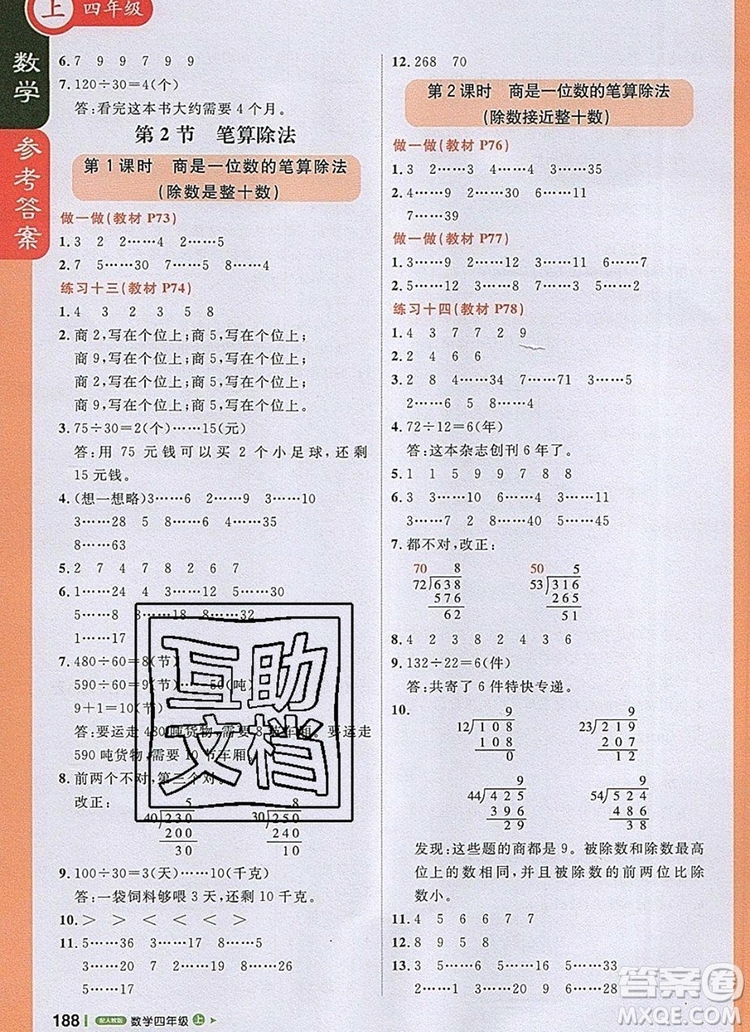 上 四年级
数学
参考答案
6. 7 9 7 9 9 9
7. 120÷30=4(个)
答:看完这本书大约需要 4 个月。
第 2 节 笔算除法
第 1 课时 商是一位数的笔算除法
(除数是整十数)
做一做(教材 P73)
1. 3 2 2……2 7……5
2. 7 5……30 7……5 8……20
练习十三(教材 P74)
1. 4 3 2 3 5 8
2. 商 2,写在个位上;商 5,写在个位上;
商 9,写在个位上;商 5,写在个位上;
商 9,写在个位上;商 2,写在个位上;
商 9,写在个位上;商 5,写在个位上。
3. 75÷30=2(个)……15(元)
答:用 75 元钱可以买 2 个小足球,还剩
15 元钱。
4. (想一想略)3……6 2……9 3……10
3……28 9……26 7……24
8……63
5. 2 7 4 7 8 2 6 7
6. 1……24 4 3……12 9……17
5……8 8……18 8……32 6
1……17
7. 480÷60=8(节)
590÷60=9(节)……50(吨)
9+1=10(节)
答:要运走 480 吨货物,需要 8 节车厢。要运走
590 吨货物,需要 10 节车厢。
8. 前两个不对,第三个对。
改正:
5 8
40 230 30 250
200 240
30 10
9. 100÷30=3(天)……10(千克)
答:一袋饲料够喂 3 天,还剩 10 千克。
10. > > < < < <
11. 5……35 3……17 4……20
6……36 4……15 9……33
5……27
12. 268 70
第 2 课时 商是一位数的笔算除法
(除数接近整十数)
做一做(教材 P76)
1. 3 4……2 3……15
2. 4……7 6……9 3……21
7……39
做一做(教材 P77)
1. 3……2 2……12 3……11 6……11
2. 5……12 5……4 7……7 6……35
练习十四(教材 P78)
1. 4 3 7 7 2 9
2. 2 4 6 6
3. 2……4 4……17 9……4
8……22
4. 72÷12=6(年)
答:这本杂志创刊 6 年了。
5. 1 1 5 9 9 8 8 7
6. 3……4 7……19 4……37
2……9 5……10
7. 都不对,改正:
70 8 50 5
72 638 53 316
576 265
62 51
8. 4 2 3 8 2 3 6 4
9. 132÷22=6(件)
答:共寄了 6 件特快专递。
10.
9 9
12 108 22 204
108 198
0 6
9 9
44 425 54 524
396 486
29 38
发现:这些题的商都是 9。被除数和除数最高
位上的数相同,并且被除数的前两位比除
数小。
11. 4 5 6 6 7 7
12. 8 9 5 8
13. 2……5 3……3 4……15
3……23 6……27 6……20
7……13 5……37
互助文档
188 配人教版 数学四年级 上
答案圈
MXQE.COM